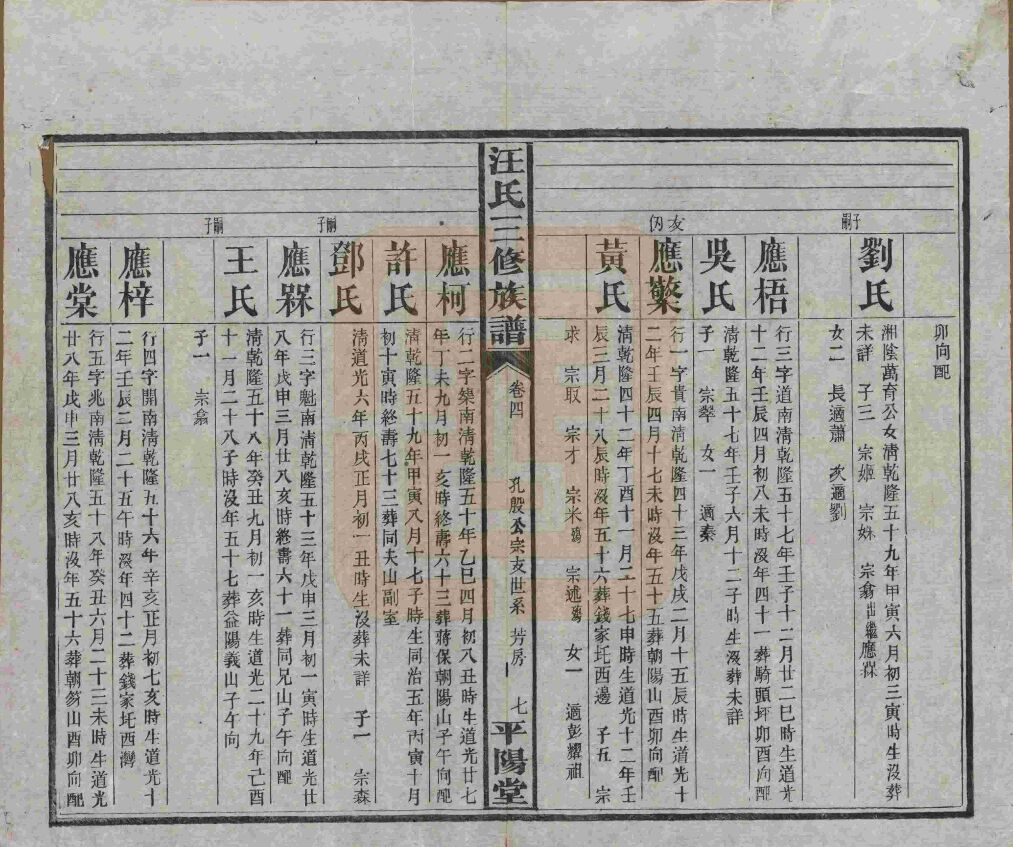 卯向配
子嗣
劉氏
湘陰萬育公女清乾隆五十九年甲寅六月初三寅時生沒葬
未詳 子三 宗姬 宗姝 宗翕出繼應槑
女二 長適蕭 次適劉
應梧
行三字道南清乾隆五十七年壬子十二月廿二巳時生道光
十二年壬辰四月初八未時沒年四十一葬騎頭坪卯酉向配
吳氏
清乾隆五十七年壬子六月十二子時生沒葬未詳
子一 宗犖 女一 適秦
友
應檠
行一字貴南清乾隆四十三年戊戌二月十五辰時生道光十
二年壬辰四月十七未時沒年五十五葬朝陽山酉卯向配
黃氏
清乾隆四十二年丁酉十一月二十七申時生道光十二年壬
辰三月二十八辰時沒年五十六葬錢家圫西邊 子五 宗
求 宗取 宗才 宗米殤 宗述殤 女一 適彭耀祖
汪氏三修族譜
卷四
孔殷公宗支世系 芳房
七
平陽堂
應柯
行二字榘南清乾隆五十年乙巳四月初八丑時生道光廿七
年丁未九月初一亥時終壽六十三葬蔣保朝陽山子午向配
許氏
清乾隆五十九年甲寅八月十七子時生同治五年丙寅十月
初十寅時終壽七十三葬同夫山副室
嗣子
鄧氏
清道光六年丙戌正月初一丑時生沒葬未詳 子一 宗森
應槑
行三字魁南清乾隆五十三年戊申三月初一寅時生道光廿
八年戊申三月廿八亥時終壽六十一葬同兄山子午向配
嗣子
王氏
清乾隆五十八年癸丑九月初一亥時生道光二十九年己酉
十一月二十八子時沒年五十七葬益陽義山子午向
子一 宗翕
應梓
行四字開南清乾隆五十六年辛亥正月初七亥時生道光十
二年壬辰二月二十五午時沒年四十二葬錢家圫酉灣
應棠
行五字兆南清乾隆五十八年癸丑六月二十三未時生道光
廿八年戊申三月廿八亥時沒年五十六葬朝笏山酉卯向配